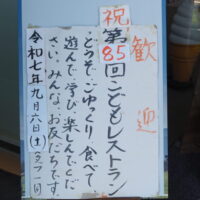 歓迎
祝
第85回こどもレストラン
どうぞ、ごゆっくり、食べて
遊んで、学び、楽しんでくだ
さい。みんな、お友だちです。
令和七年九月六日(土)